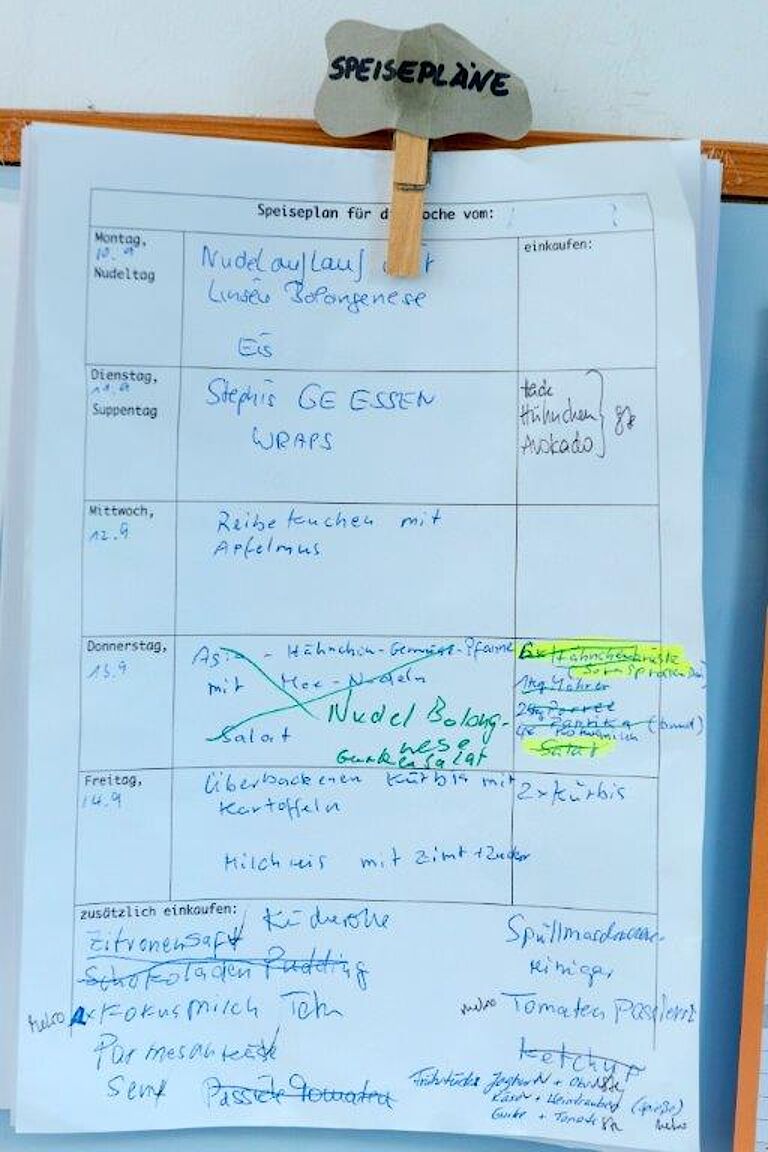 SPEISEPLÄNE
Speiseplan für d oche vom:
Montag,
10.9
Nudeltag
Nudelauflauf
Linsen Bolongenese
Eis
einkaufen:
Dienstag,
11.9
Suppentag
Stephis GE ESSEN
WRAPS
Hühnchen
Avokado
Mittwoch,
12.9
Reibekuchen mit
Apfelmus
Donnerstag,
13.9
Asia - Hühnchen-Gemüse-Pfanne
mit Mee-Nudeln
Salat
Nudel Bolong-
nese
Gurkensalat
Hühnchenbrüste
1kg Möhren
Paprika (bunt)
Kokosmilch
Salat
Freitag,
14.9
Überbackenen Kürbis mit
Kartoffeln
Milchreis mit Zimt + Zucker
2x Kürbis
zusätzlich einkaufen:
Küchenrolle
Zitronensaft
Schokoladen Pudding
Metro Kokosmilch
Parmesankäse
Senf Passierte Tomaten
Spülmaschinen-
reiniger
Metro Tomaten Passiert
Ketchup
Frühstück: Joghurt + Obst
Käse + Weintrauben (Spieße)
Gurke + Tomate Metro